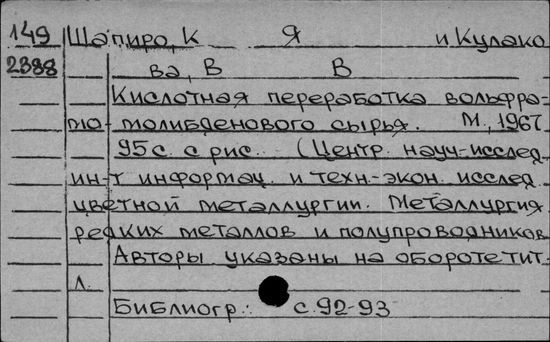 149 Шапиро, К Я и Кулако
2388 ва, В В
Кислотная переработка вольфра-
мо-молибденового сырья. М., 1967.
95 с. с рис. (Центр. науч-исслед.
ин-т информац. и техн.-экон. исслед.
цветной металлургии. Металлургия
редких металлов и полупроводников
Авторы указаны на обороте тит.
л.
Библиогр.: с. 92-93